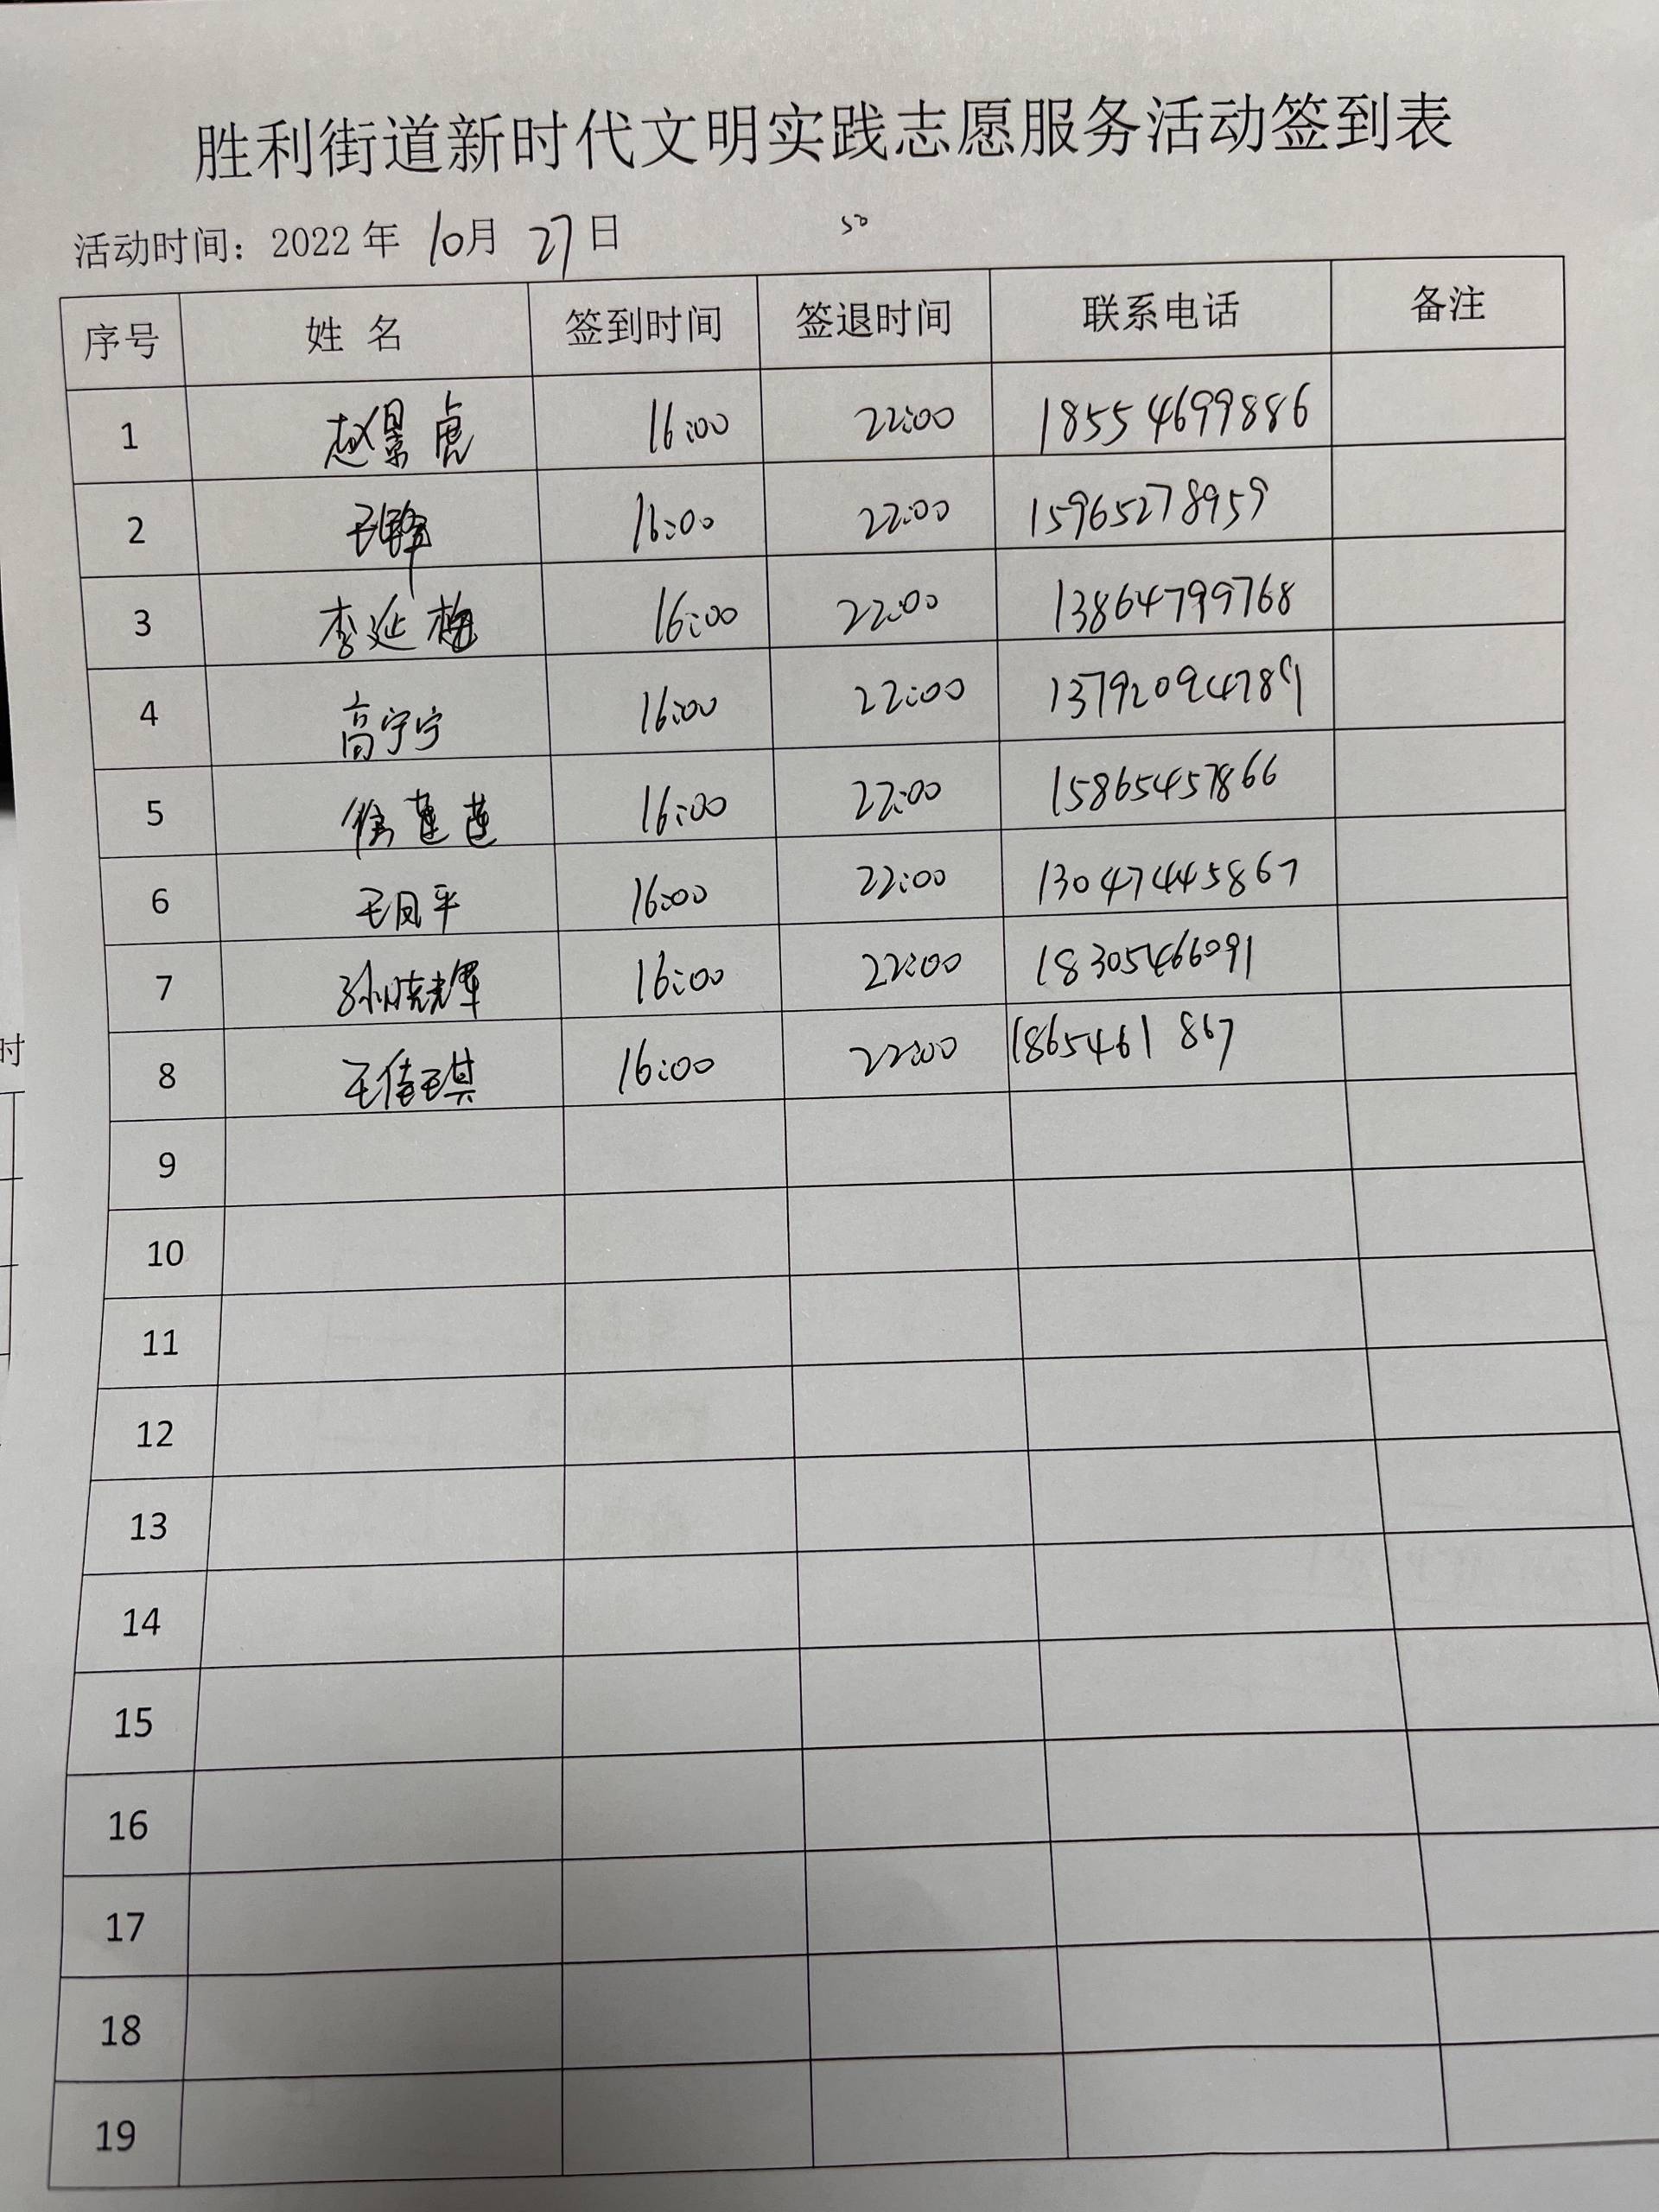 胜利街道新时代文明实践志愿服务活动签到表
活动时间：2022年 10月 27日 50
序号 姓 名 签到时间 签退时间 联系电话 备注
1 赵景虎 16:00 22:00 18554699886
2 王 16:00 22:00 15965278959
3 李延梅 16:00 22:00 13864799768
4 高宁宁 16:00 22:00 13792094789
5 徐莲莲 16:00 22:00 15865457866
6 王凤平 16:00 22:00 130474445867
7 孙晓辉 16:00 22:00 18305466091
8 王倩琪 16:00 22:00 1865461 867
9
10
11
12
13
14
15
16
17
18
19
时